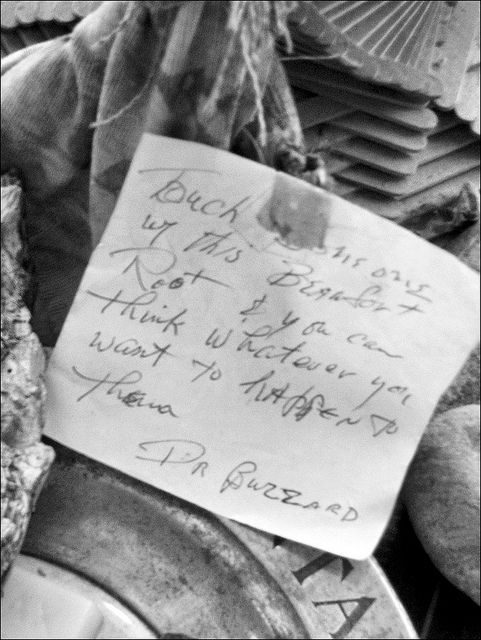 Touch someone
w/ this Beaufort
Root & you can
think whatever you
want to happen to
them
Dr Buzzard
TA